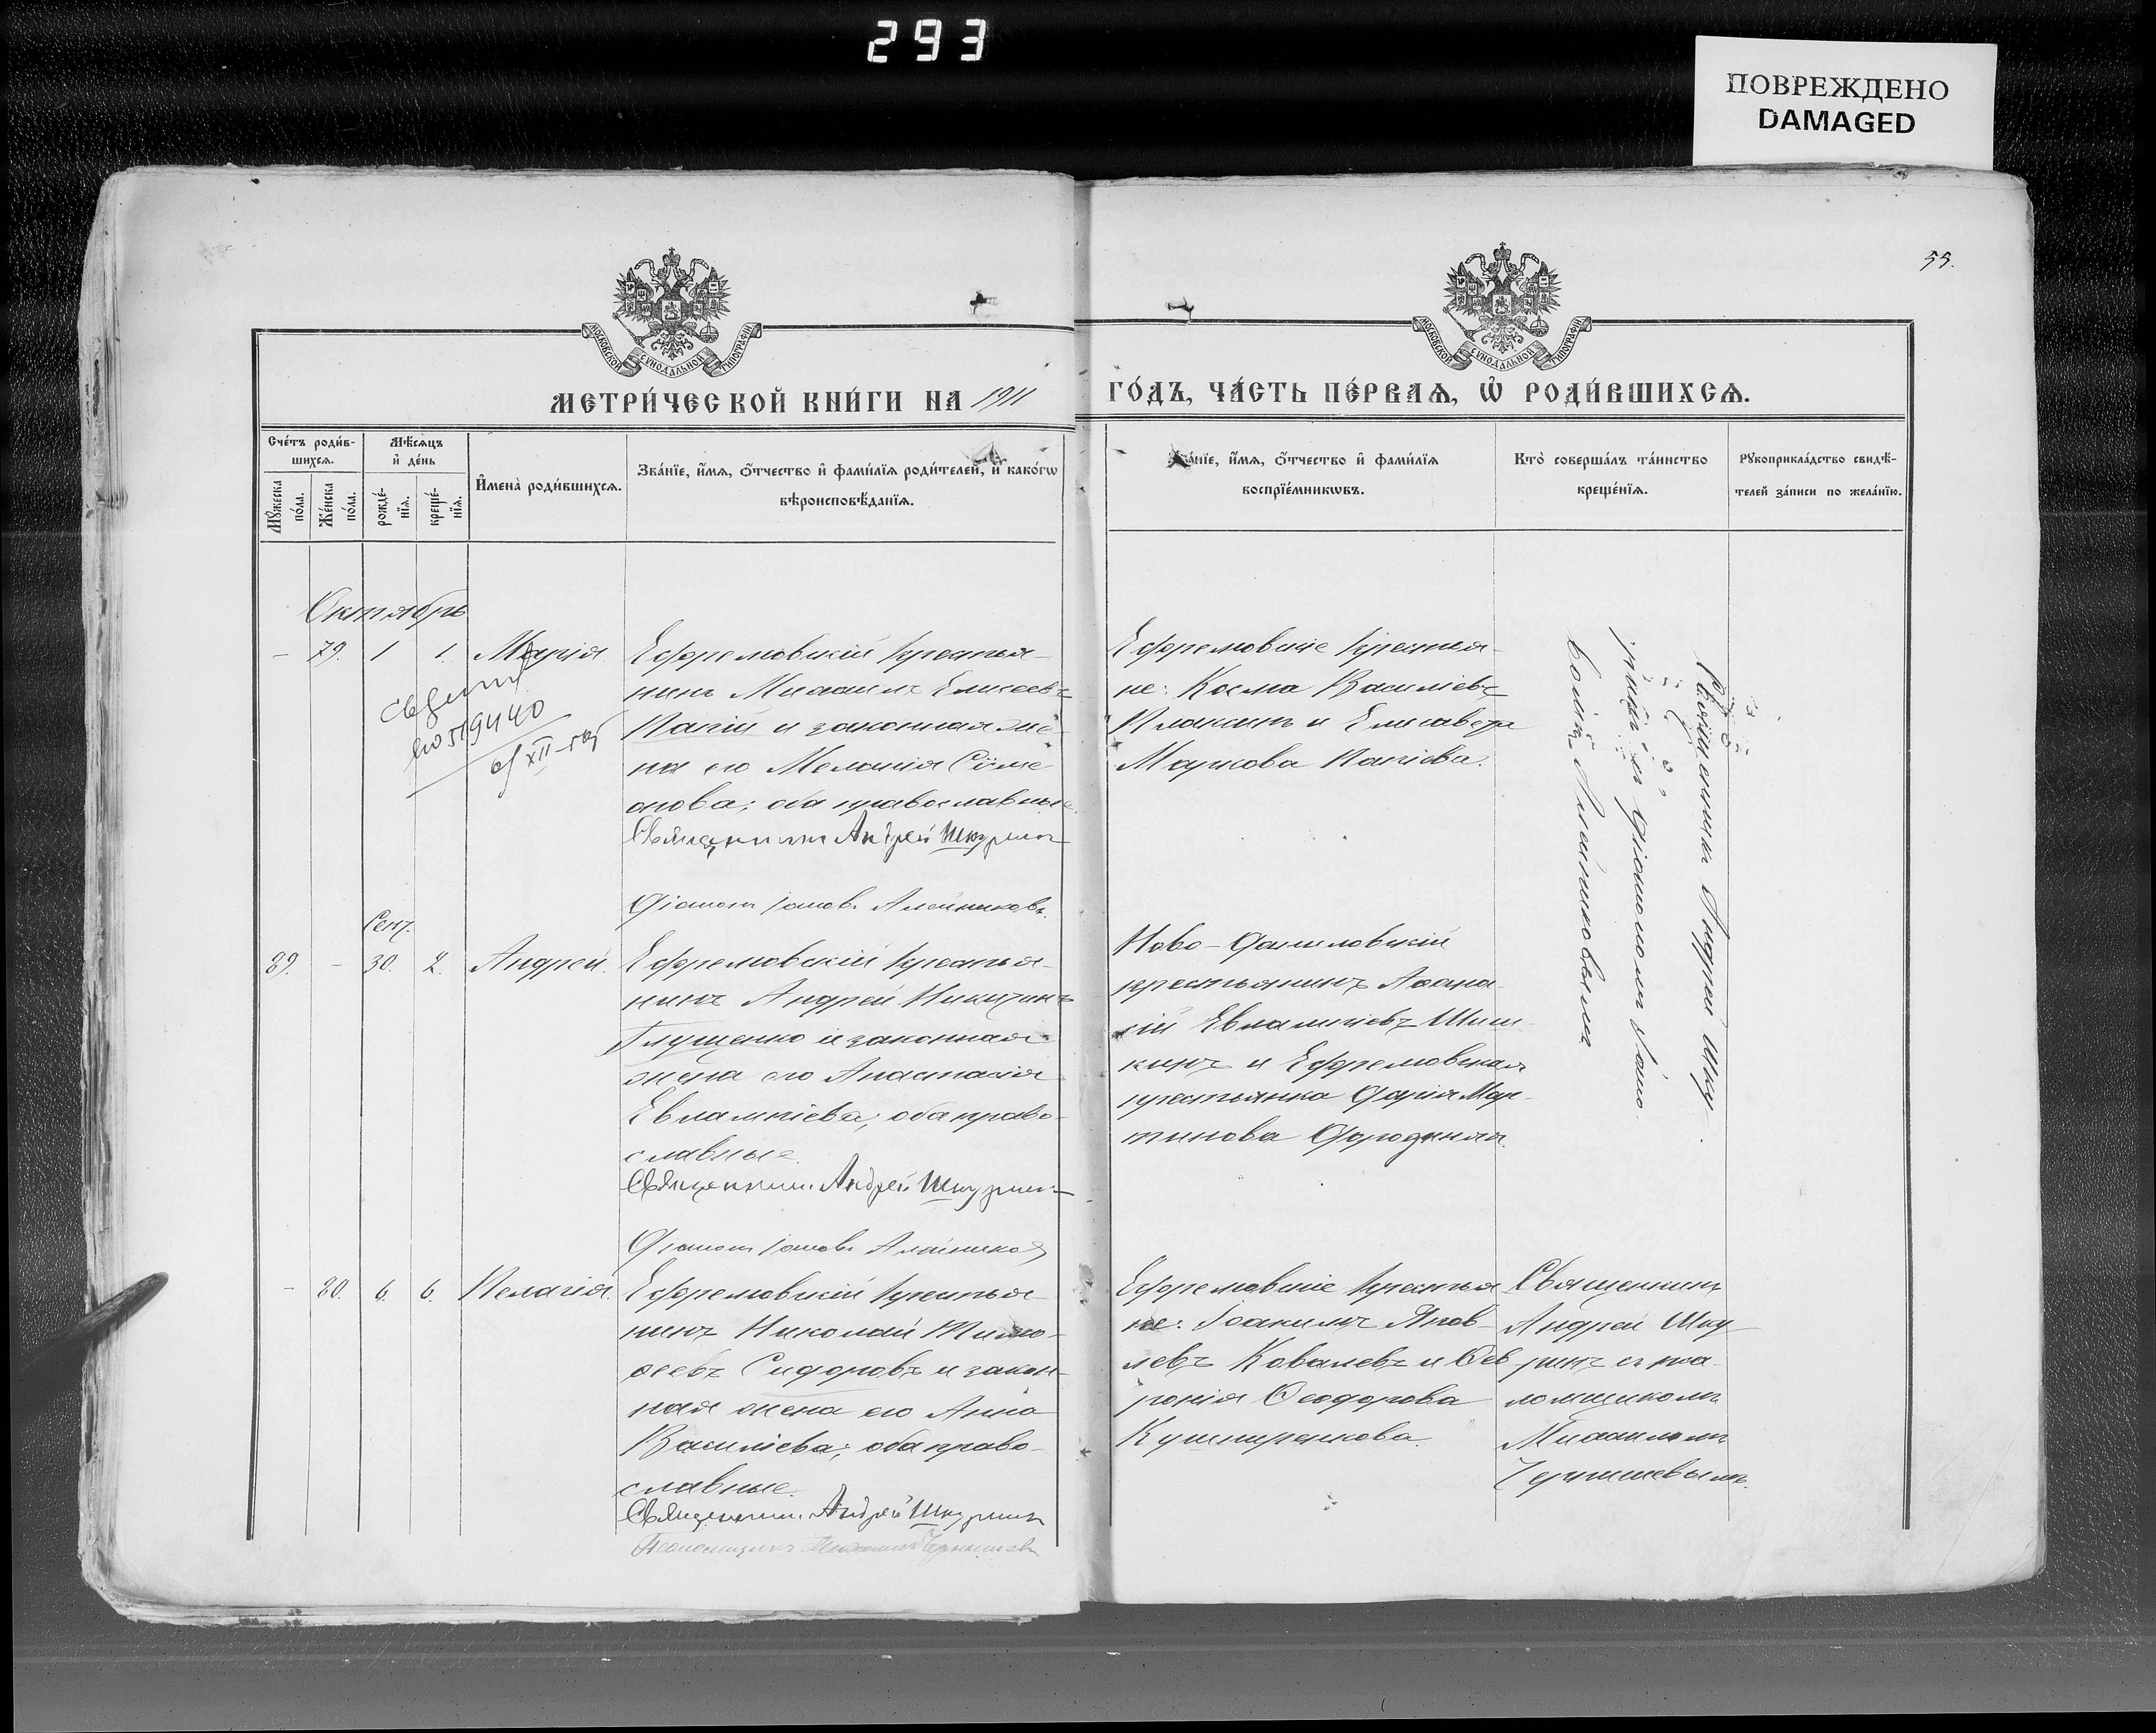 293
ПОВРЕЖДЕНО
DAMAGED
55.
МОСКОВСКОЙ СѴНОДАЛЬНОЙ ТИПОГРАФІИ
МОСКОВСКОЙ СѴНОДАЛЬНОЙ ТИПОГРАФІИ
МЕТРИ́ЧЕСКОЙ КНИ́ГИ НА 1911
ГО́ДЪ, ЧА́СТЬ ПЕ́РВАѦ, Ѡ҆ РОДИ́ВШИХСѦ.
Сче́тъ роди́в-
шихсѧ.
Мꙋ́жеска по́ла.
Же́нска по́ла.
Мѣ́сѧцъ
и҆ де́нь
рожде́-
нїѧ.
креще́-
нїѧ.
И҆мена̀ роди́вшихсѧ.
Зва́нїе, и҆́мѧ, ѻ҆́тчество и҆ фами́лїѧ роди́телей, и҆ како́гѡ
вѣроисповѣ́данїѧ.
Зва́нїе, и҆́мѧ, ѻ҆́тчество и҆ фами́лїѧ
воспрїе́мникѡвъ.
Кто̀ соверша́лъ та́инство
креще́нїѧ.
Рꙋкоприкла́дство свидѣ́-
телей за́писи по жела́нїю.
Октябрь
- 79. 1 1. Марія.
Ефремовскій крестья-
нинъ Михаилъ Елисеевъ
Капій и законная же-
на его Меланія Симе-
онова; оба православные.
Священникъ Андрей Шкуринъ
Діаконъ Іаковъ Алейниковъ.
Ефремовскіе крестья-
не: Косма Василіевъ
Плаксинъ и Елисавета
Маркова Капіева.
Священникъ Андрей Шку-
ринъ съ діакономъ Іако-
вомъ Алейниковымъ
Сент.
89. - 30. 2. Андрей.
Ефремовскій крестья-
нинъ Андрей Никитинъ
Глущенко и законная
жена его Анастасія
Евлампіева; оба право-
славные.
Священникъ Андрей Шкуринъ
Діаконъ Іаковъ Алейниковъ
Ново-Даниловскій
крестьянинъ Аѳана-
сій Евлампіевъ Шиш-
кинъ и Ефремовская
крестьянка Дарія Мар-
тинова
- 80. 6. 6. Пелагія.
Ефремовскій крестья-
нинъ Николай Тимо-
ѳеевъ Сидоровъ и закон-
ная жена его Анна
Василіева; оба право-
славные.
Священникъ Андрей Шкуринъ
Псаломщикъ Михаилъ Чернышевъ
Ефремовскіе крестья-
не: Іоакимъ Яков-
левъ Ковалевъ и Фев-
ронія Ѳеодорова
Кушниренкова.
Священникъ
Андрей Шку-
ринъ съ пса-
ломщикомъ
Михаиломъ
Чернышевымъ.